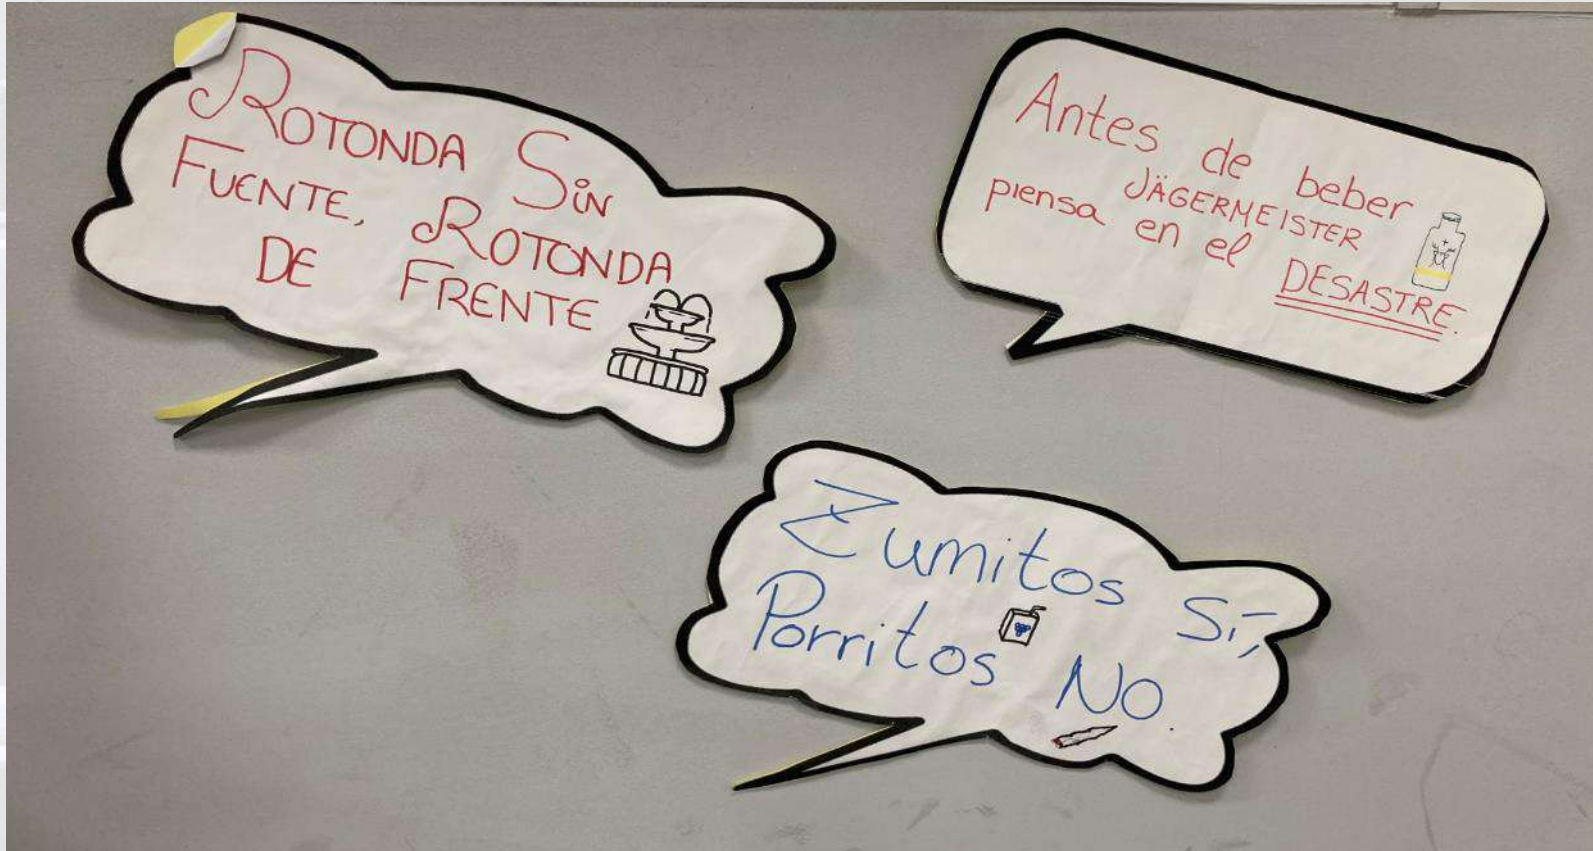 ROTONDA SiN
FUENTE, ROTONDA
DE FRENTE
Antes de beber
JÄGERMEISTER
piensa en el DESASTRE.
Zumitos Sí,
Porritos NO.